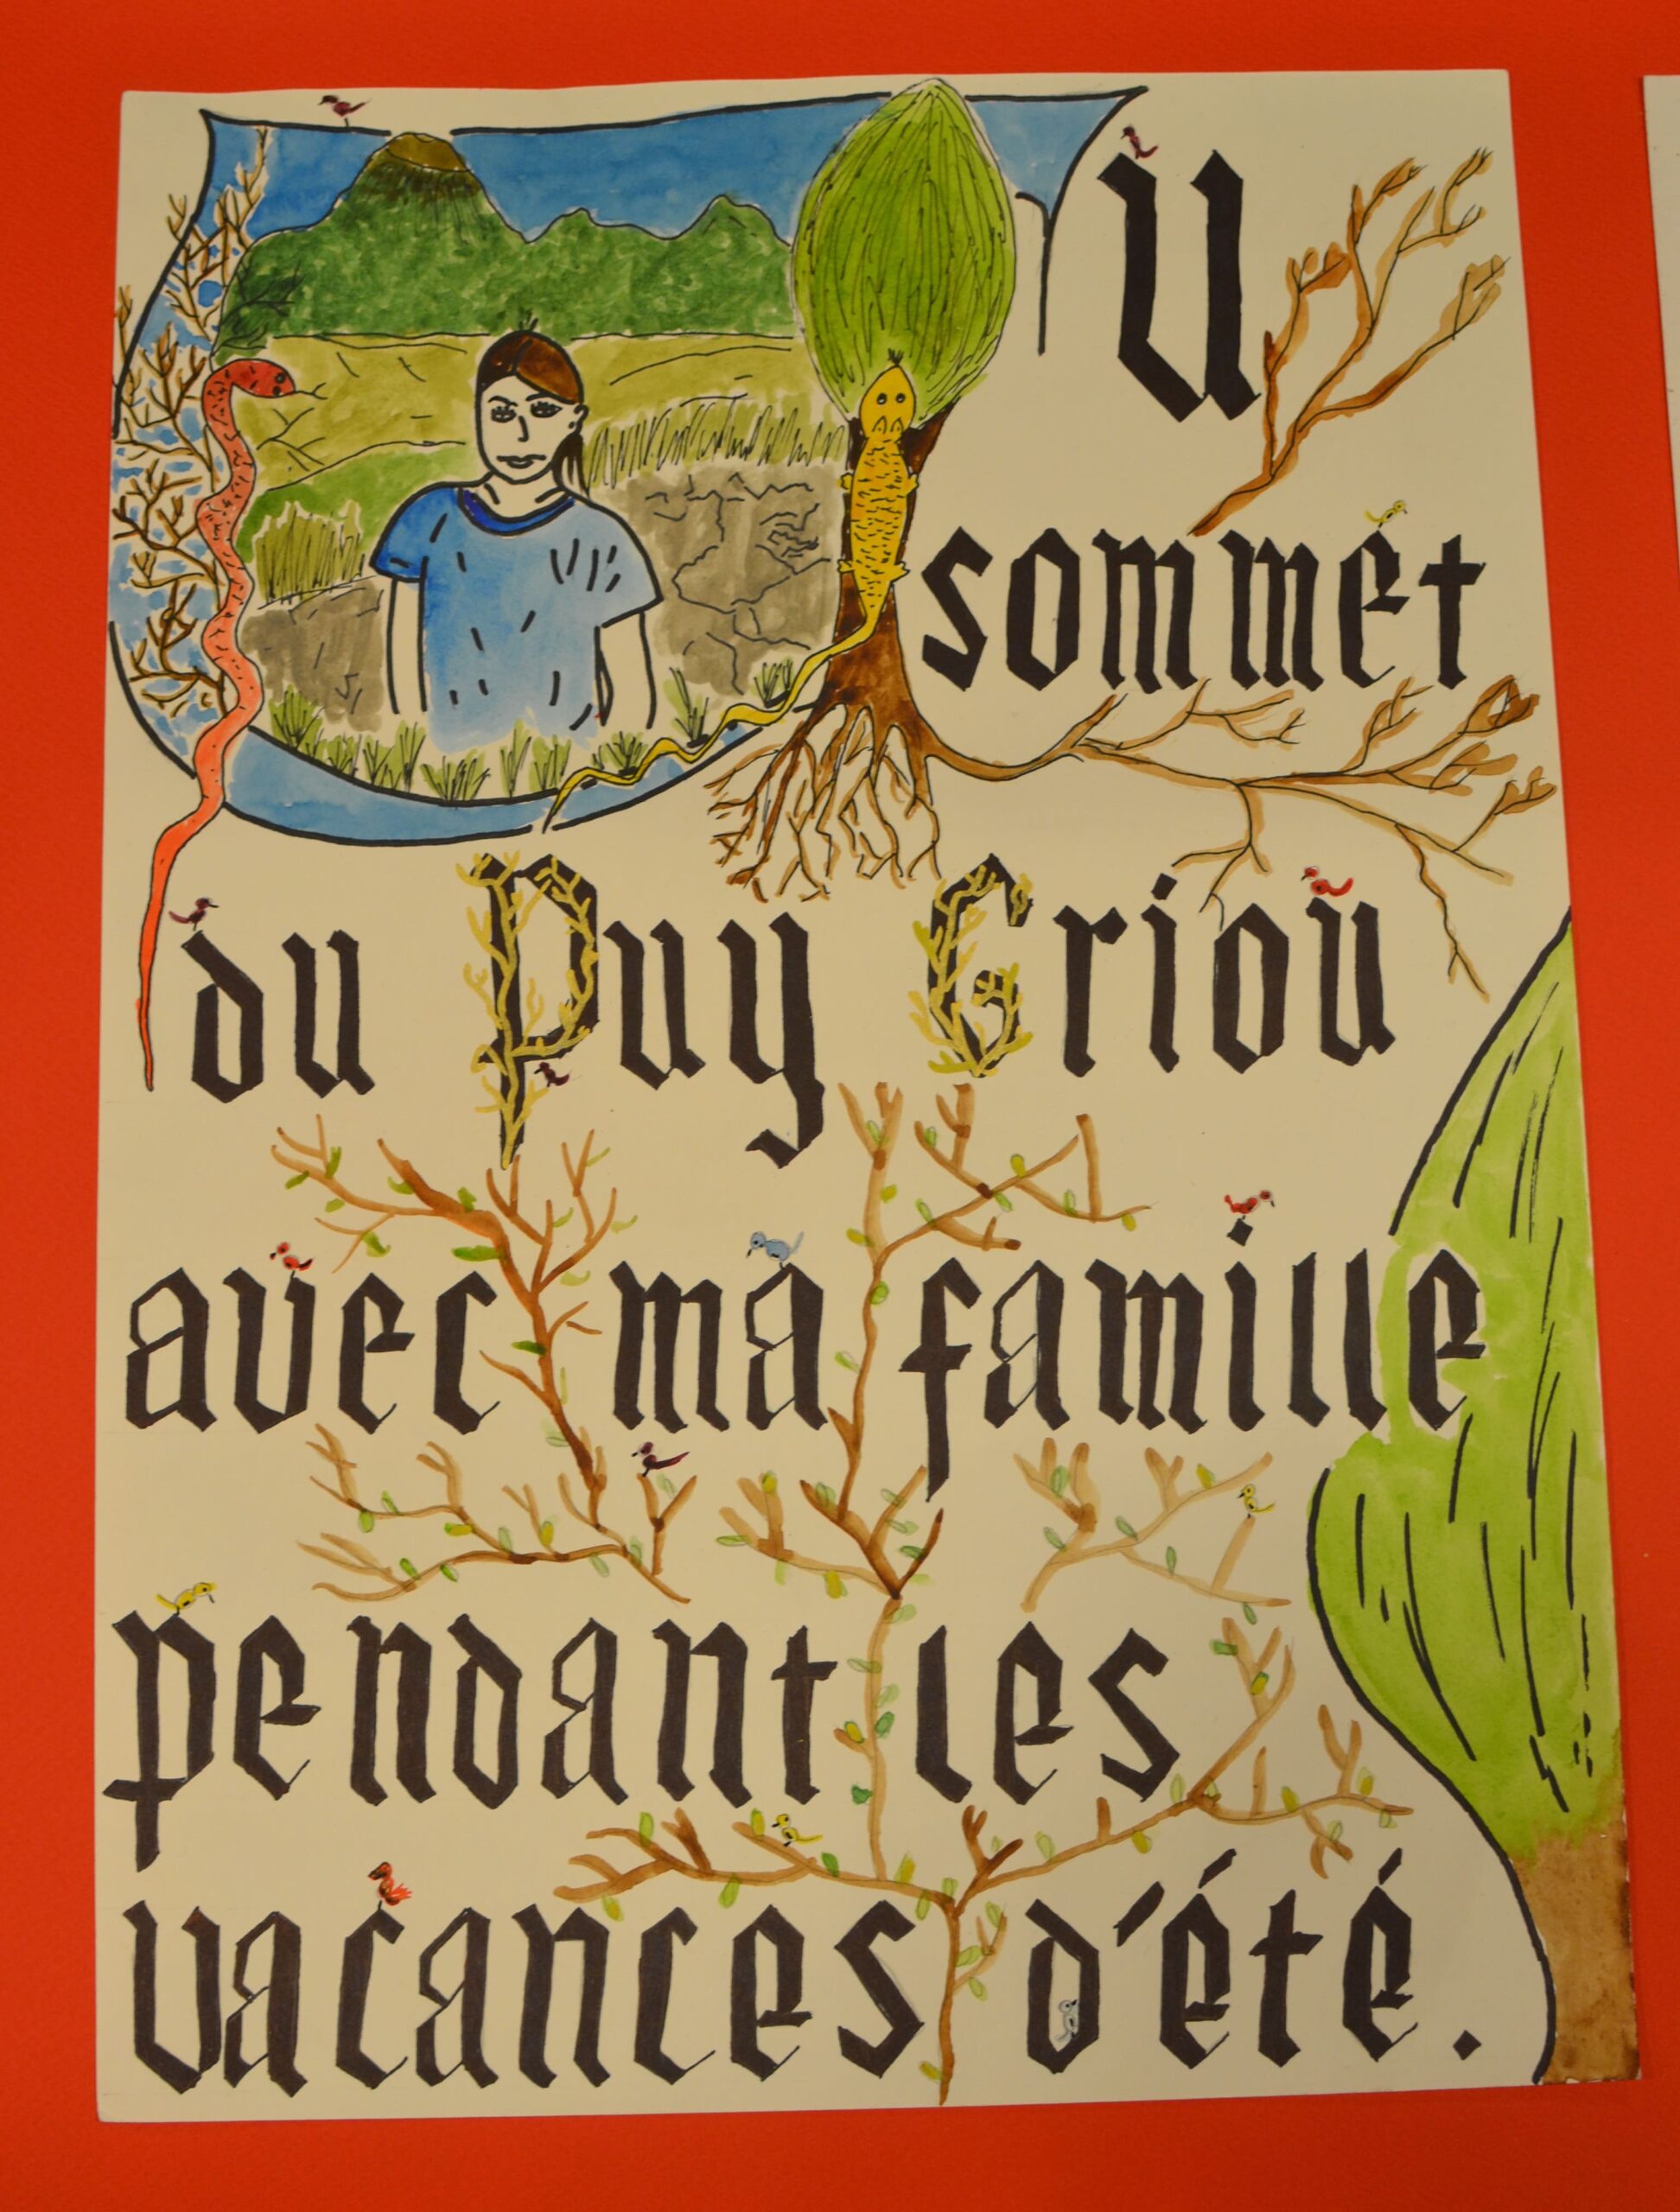 Au
sommet
du Puy Griou
avec ma famille
pendant les
vacances d'été.